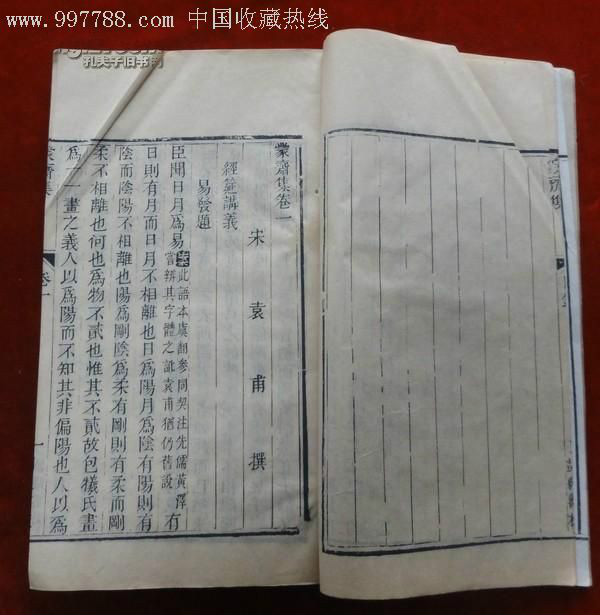 www.997788.com 中国收藏热线
孔夫子旧书网
蒙齋集卷一
宋 袁 甫 撰
經筵講義
易發題
臣聞日月爲易案此語本虞翻參同契注先儒黃澤嘗辨其字體之訛袁甫猶仍舊說有
日則有月而日月不相離也日爲陽月爲陰有陽則有
陰而陰陽不相離也陽爲剛陰爲柔有剛則有柔而剛
柔不相離也何也爲物不貳也惟其不貳故包犧氏畫
爲一畫之義人以爲陽而不知其非偏陽也人以爲
蒙齋集
卷一
一